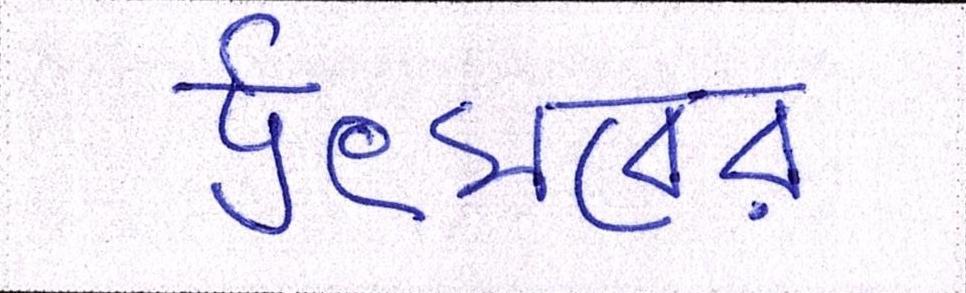 উৎসবের